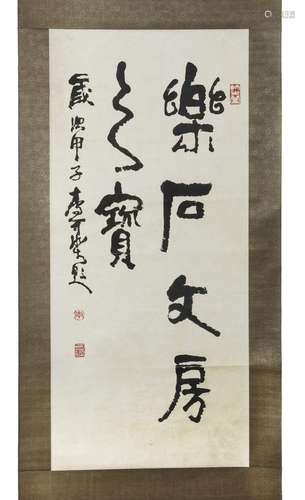 樂石文房
之寶
歲次甲子李可染題